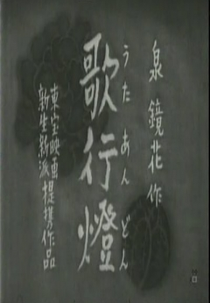 泉鏡花作
歌行燈
うたあんどん
東宝映画
新生新派
提携作品